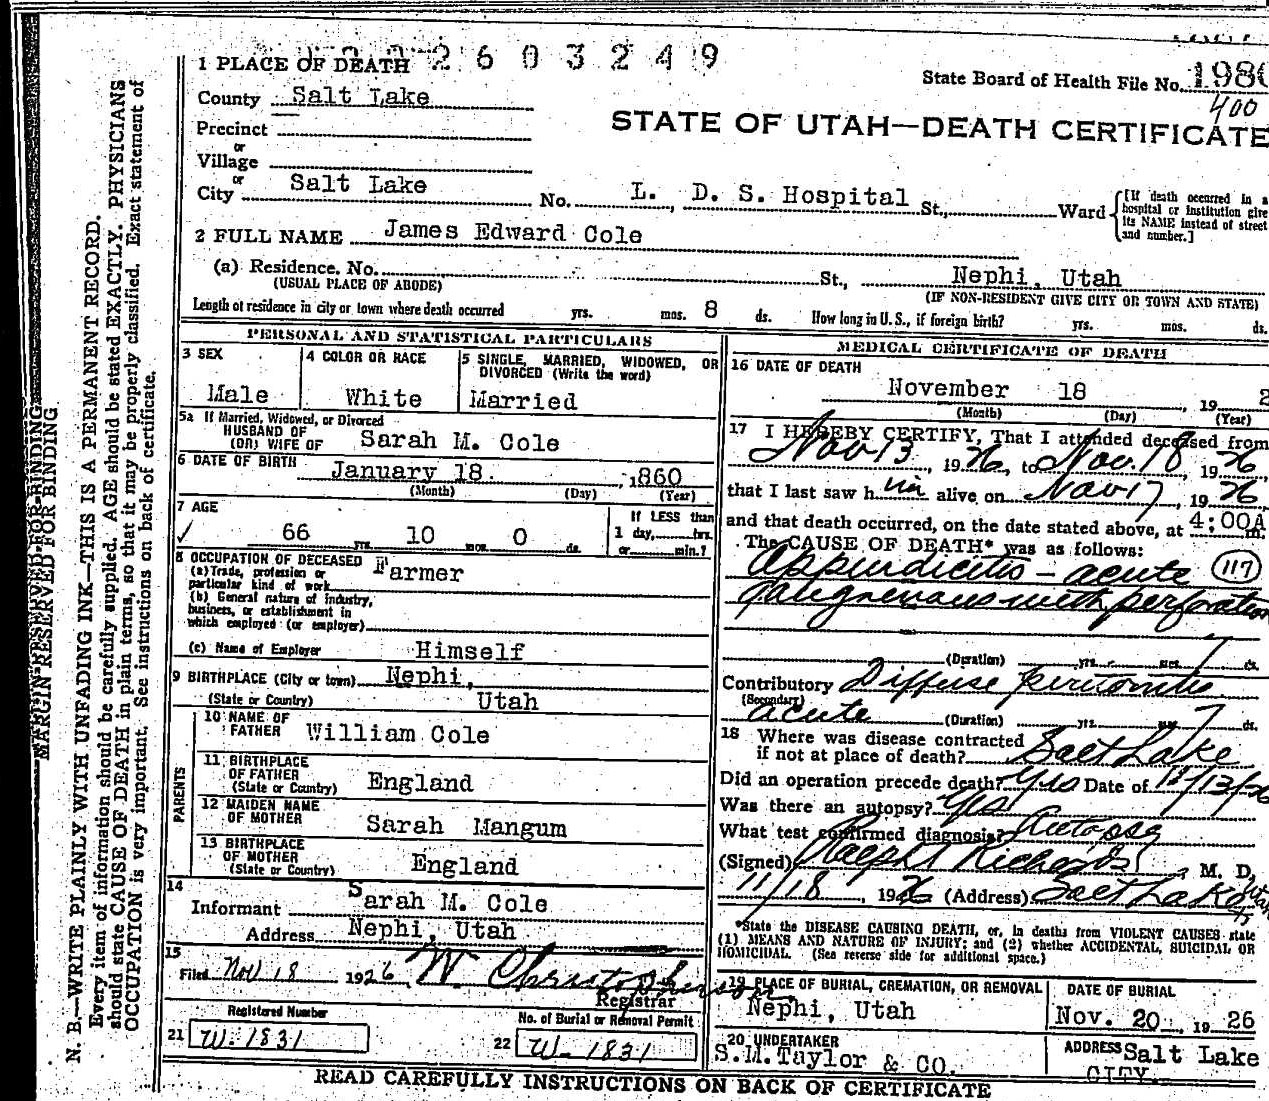 2 6 0 3 2 4 9
1 PLACE OF DEATH
State Board of Health File No. 198
400
County Salt Lake
STATE OF UTAH—DEATH CERTIFICATE
Precinct
or
Village
or
City Salt Lake No. L. D. S. Hospital St., Ward
[If death occurred in a
hospital or institution give
its NAME instead of street
and number.]
2 FULL NAME James Edward Cole
(a) Residence. No. St., Nephi, Utah
(USUAL PLACE OF ABODE) (IF NON-RESIDENT GIVE CITY OR TOWN AND STATE)
Length of residence in city or town where death occurred yrs. mos. 8 ds. How long in U. S., if foreign birth? yrs. mos. ds.
PERSONAL AND STATISTICAL PARTICULARS
3 SEX
Male
4 COLOR OR RACE
White
5 SINGLE, MARRIED, WIDOWED, OR
DIVORCED (Write the word)
Married
5a If Married, Widowed, or Divorced
HUSBAND OF
(OR) WIFE OF Sarah M. Cole
6 DATE OF BIRTH January 18. , 1860
(Month) (Day) (Year)
7 AGE
✓ 66 yrs. 10 mos. 0 ds.
If LESS than
1 day, hrs.
or min.?
8 OCCUPATION OF DECEASED Farmer
(a) Trade, profession or
particular kind of work
(b) General nature of industry,
business, or establishment in
which employed (or employer)
(c) Name of Employer Himself
9 BIRTHPLACE (City or town) Nephi,
(State or Country) Utah
PARENTS
10 NAME OF
FATHER William Cole
11 BIRTHPLACE
OF FATHER
(State or Country) England
12 MAIDEN NAME
OF MOTHER Sarah Mangum
13 BIRTHPLACE
OF MOTHER
(State or Country) England
14
Informant Sarah M. Cole
Address Nephi, Utah
15
Filed Nov 18 1926 W. Christopherson
Registrar
Registered Number
21 W-1831
No. of Burial or Removal Permit
22 W-1831
MEDICAL CERTIFICATE OF DEATH
16 DATE OF DEATH
November 18 , 19 2
(Month) (Day) (Year)
17 I HEREBY CERTIFY, That I attended deceased from
Nov 13, 1926, to Nov. 18, 1926,
that I last saw him alive on Nov 17, 1926,
and that death occurred, on the date stated above, at 4:00A m.
The CAUSE OF DEATH* was as follows:
Appendicitis - acute 117
gangrenous with perforation
(Duration) yrs. mos. 7 ds.
Contributory Diffuse peritonitis
(Secondary)
acute (Duration) yrs. mos. 7 ds.
18 Where was disease contracted
if not at place of death? Salt Lake
Did an operation precede death? Yes Date of 11/13/26
Was there an autopsy? Yes
What test confirmed diagnosis? Autopsy
(Signed) Ralph Richards, M. D.
11/18, 1926 (Address) Salt Lake City Utah
*State the DISEASE CAUSING DEATH, or, in deaths from VIOLENT CAUSES state
(1) MEANS AND NATURE OF INJURY; and (2) whether ACCIDENTAL, SUICIDAL OR
HOMICIDAL. (See reverse side for additional space.)
19 PLACE OF BURIAL, CREMATION, OR REMOVAL
Nephi, Utah
DATE OF BURIAL
Nov. 20, 19 26
20 UNDERTAKER
S.M.Taylor & CO.
ADDRESS Salt Lake
CITY.
READ CAREFULLY INSTRUCTIONS ON BACK OF CERTIFICATE
MARGIN RESERVED FOR BINDING
N. B.—WRITE PLAINLY WITH UNFADING INK—THIS IS A PERMANENT RECORD.
Every item of information should be carefully supplied. AGE should be stated EXACTLY. PHYSICIANS
should state CAUSE OF DEATH in plain terms, so that it may be properly classified. Exact statement of
OCCUPATION is very important. See instructions on back of certificate.